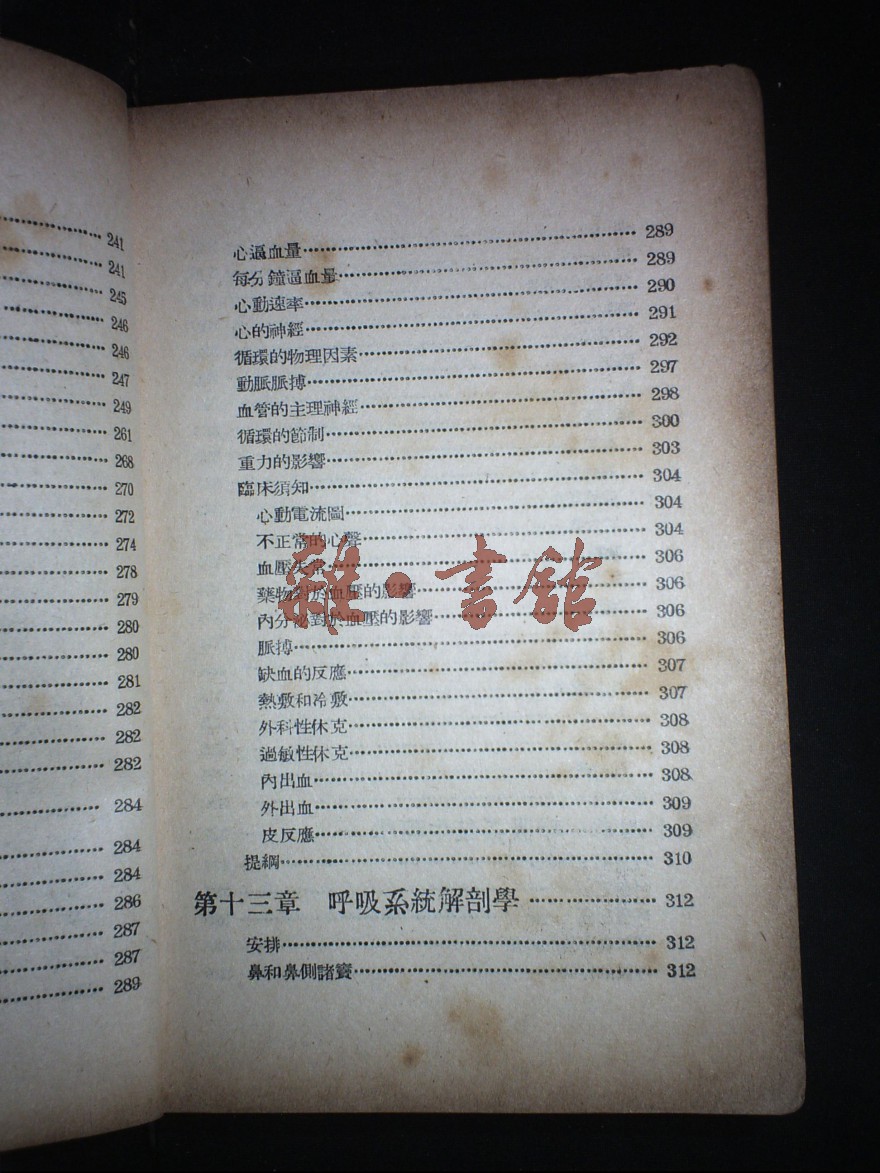 241
241
245
246
246
247
249
261
268
270
272
274
278
279
280
280
281
282
282
282
284
284
284
286
287
287
289
心逼血量 289
每分鐘逼血量 289
心動速率 290
心的神經 291
循環的物理因素 292
動脈脈搏 297
血管的主理神經 298
循環的節制 300
重力的影響 303
臨床須知 304
心動電流圖 304
不正常的心聲 304
血壓失常 306
藥物對於血壓的影響 306
內分泌對於血壓的影響 306
脈搏 306
缺血的反應 307
熱敷和冷敷 307
外科性休克 308
過敏性休克 308
內出血 308
外出血 309
皮反應 309
提綱 310
第十三章 呼吸系統解剖學 312
安排 312
鼻和鼻側諸竇 312
雜·書館